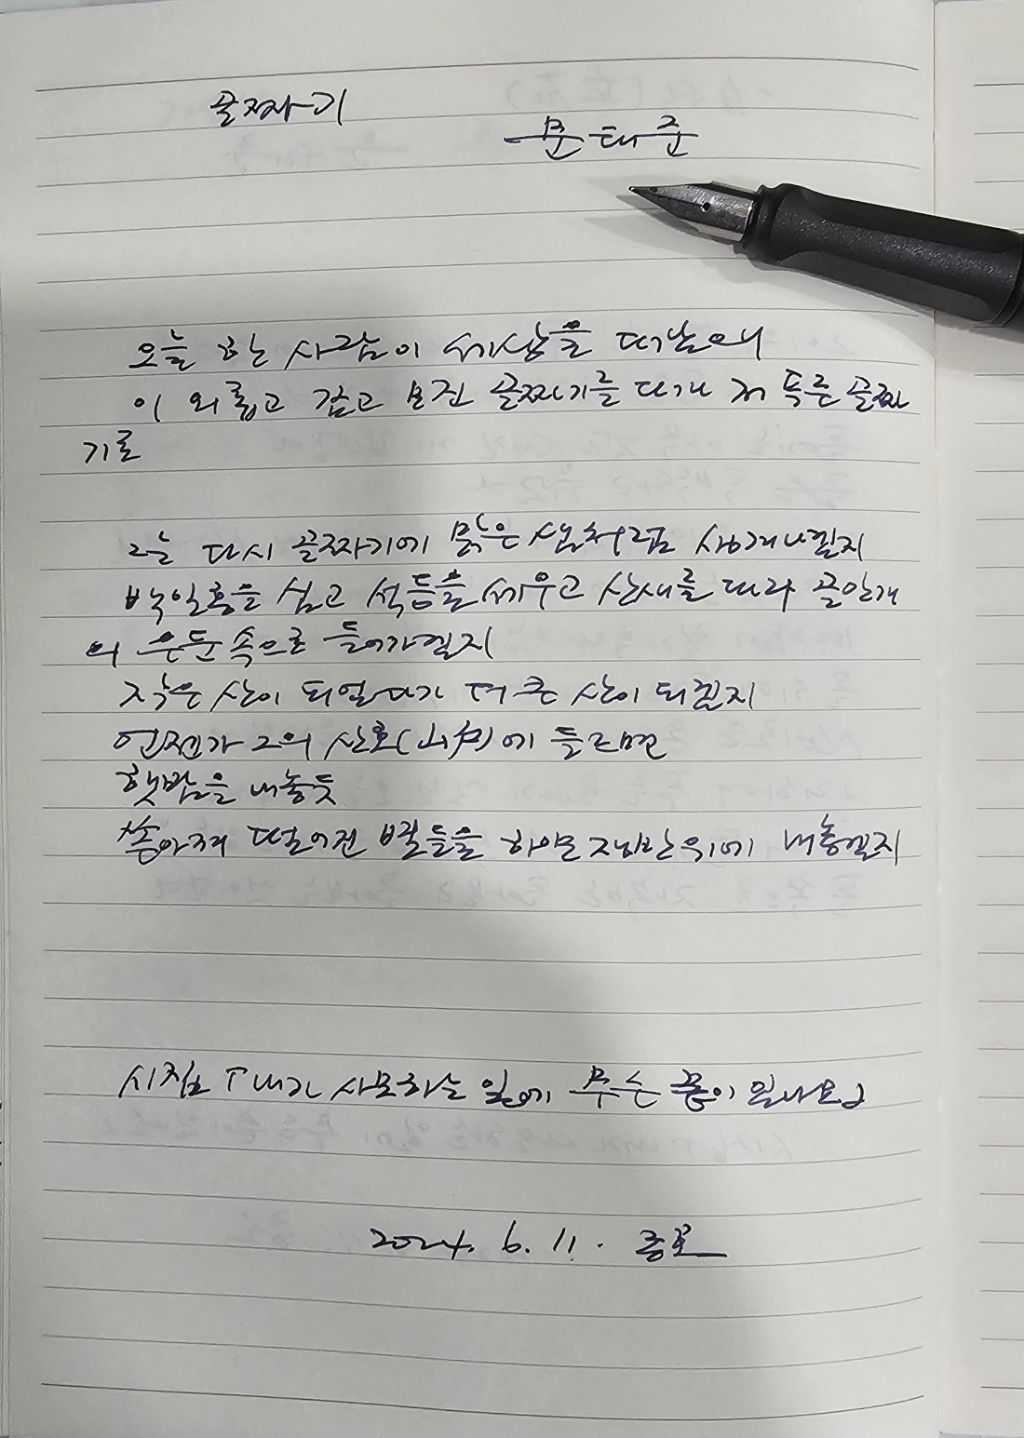 골짜기
문태준
오늘 한 사람이 세상을 떠났으니
이 외롭고 깊고 모진 골짜기를 떠나 저 푸른 골짜
기로
그는 다시 골짜기에 맑은 샘처럼 생겨나겠지
백일홍을 심고 석등을 세우고 산새를 따라 골안개
의 은둔 속으로 들어가겠지
작은 산이 되었다가 더 큰 산이 되겠지
언젠가 그의 산호(山戶)에 들르면
햇밤을 내놓듯
쏟아져 떨어진 별들을 하얀 쟁반 위에 내놓겠지
시집 「내가 사모하는 일에 무슨 끝이 있나요」
2024. 6. 11.